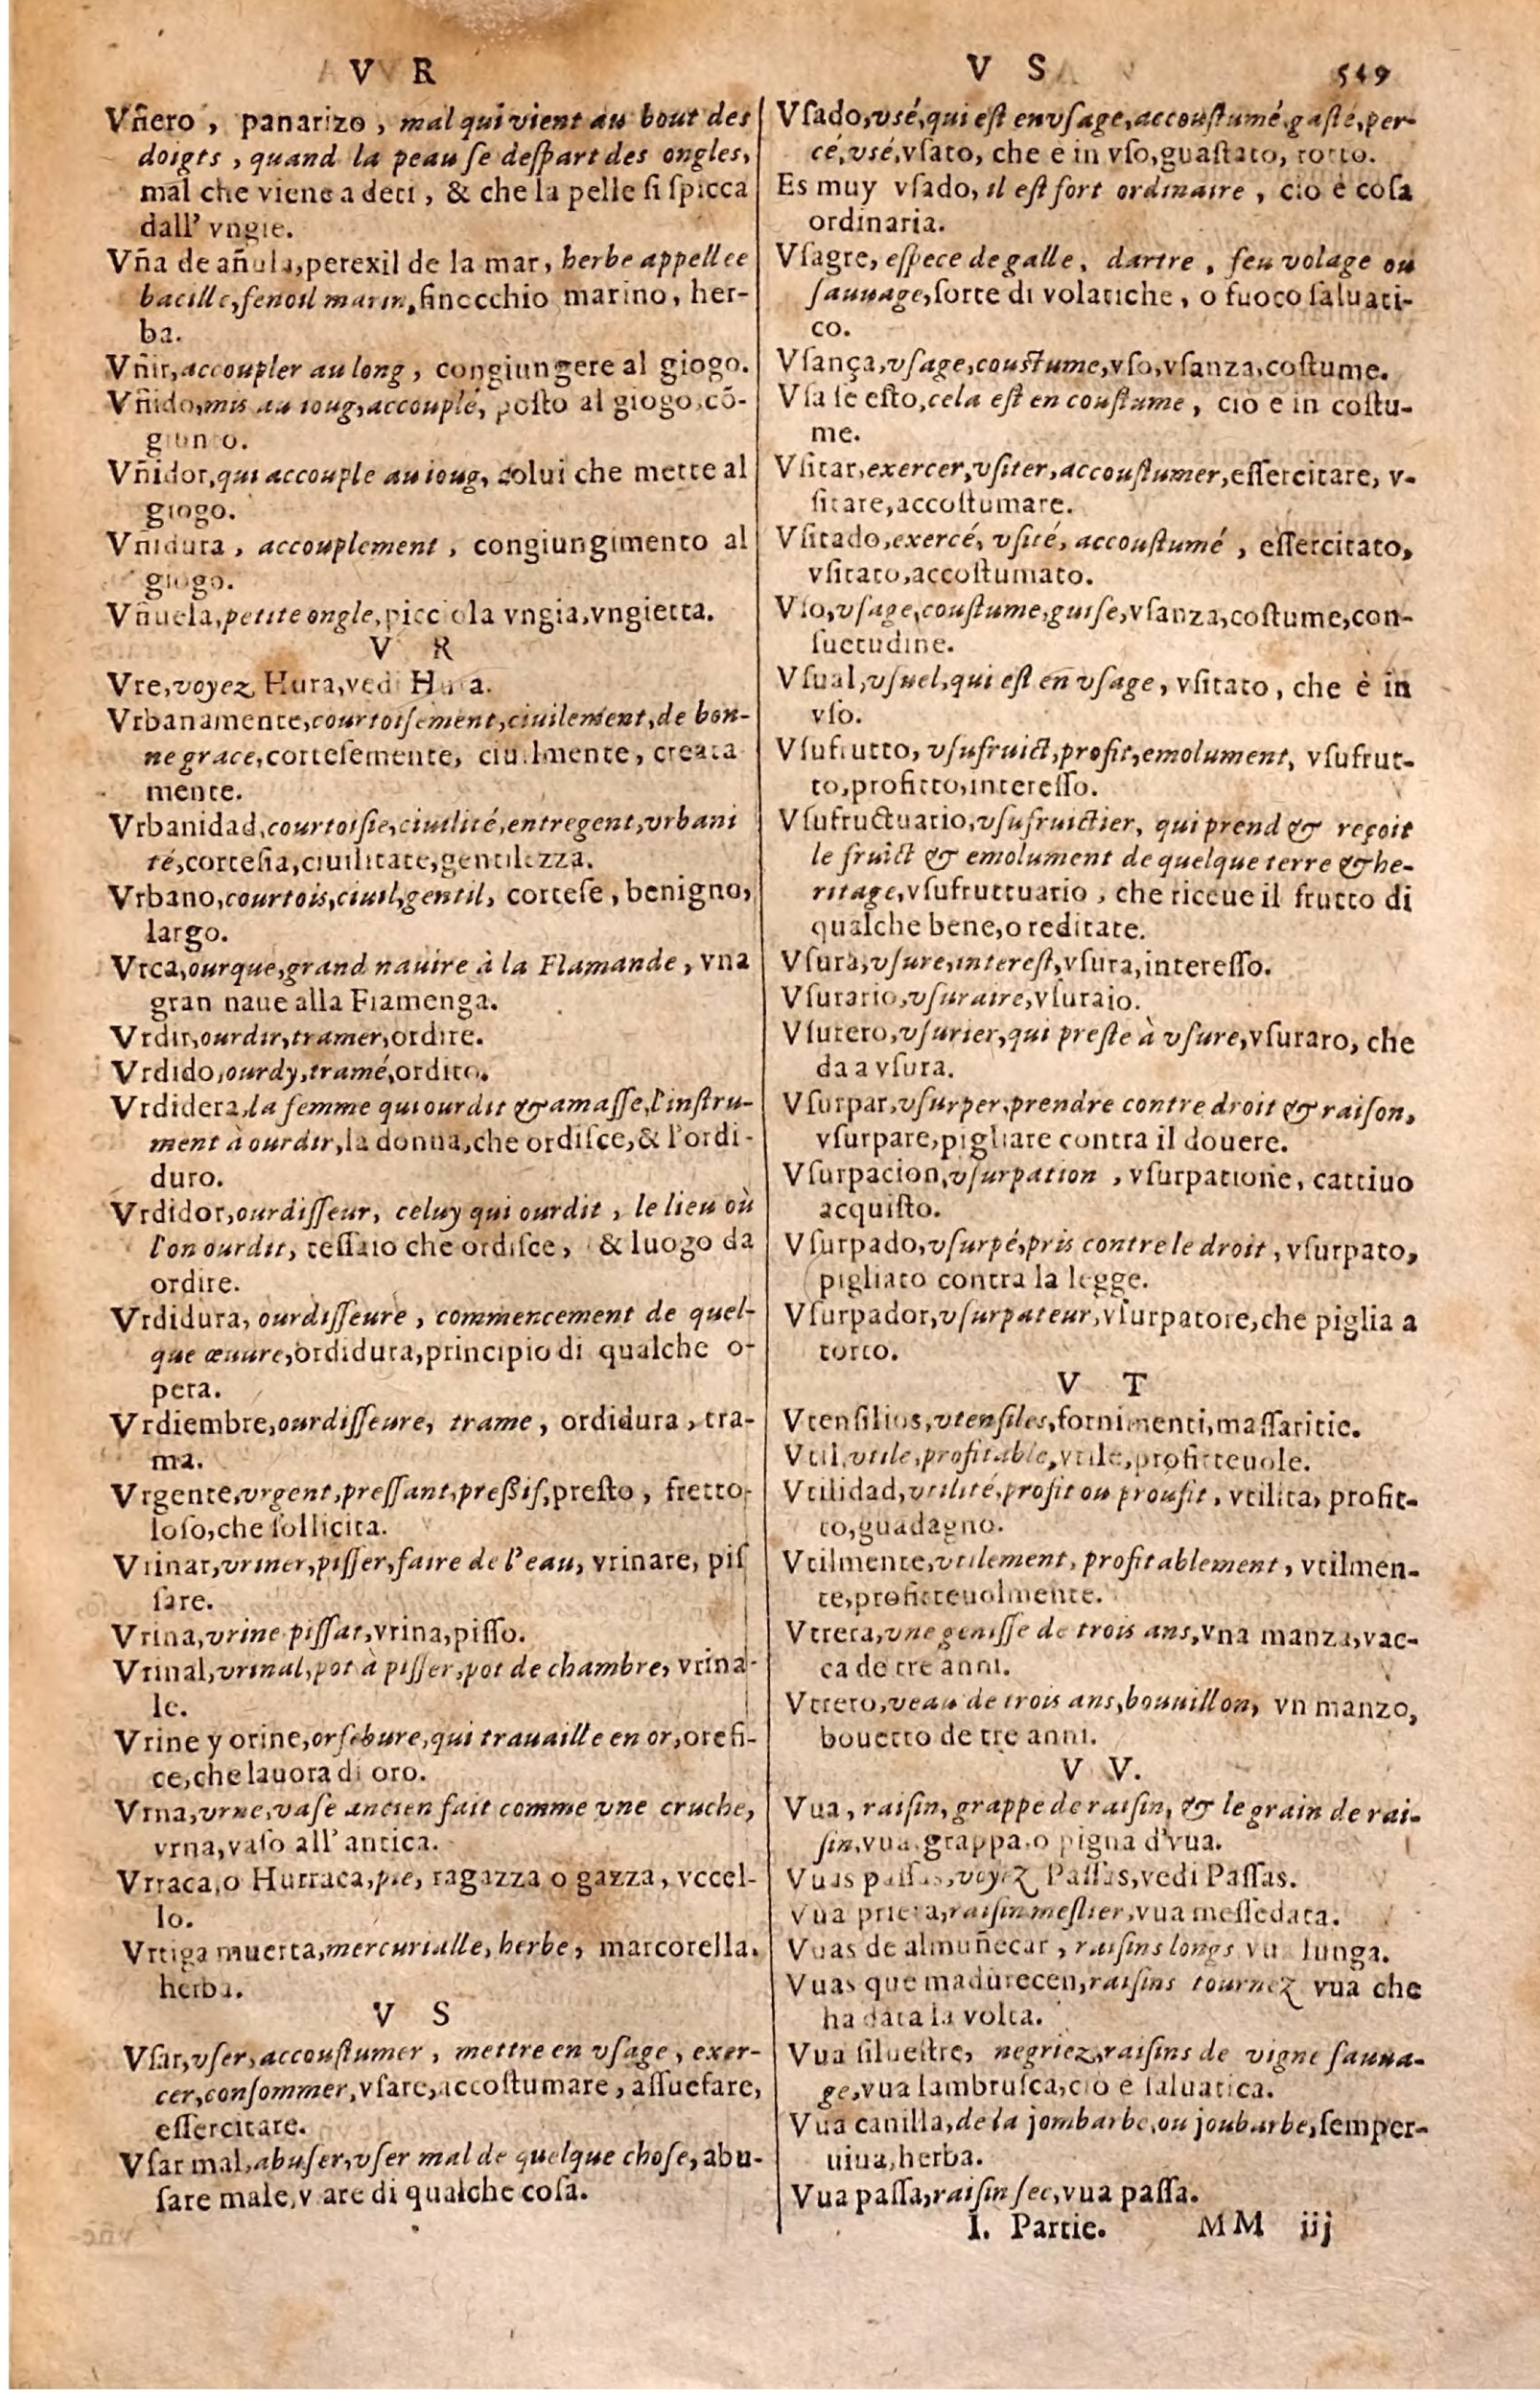 V R
V S
549
Vñero, panarizo, mal qui vient au bout des
doigts, quand la peau se despart des ongles,
mal che viene a deti, & che la pelle si spicca
dall' vngie.
Vña de añula, perexil de la mar, herbe appellee
bacille, fenoil marin, finocchio marino, her-
ba.
Vñir, accoupler au long, congiungere al giogo.
Vñido, mis au ioug, accouplé, posto al giogo, cō-
giunto.
Vñidor, qui accouple au ioug, colui che mette al
giogo.
Vñidura, accouplement, congiungimento al
giogo.
Vñuela, petite ongle, picciola vngia, vngietta.
V R
Vre, voyez Hura, vedi Hura.
Vrbanamente, courtoisement, ciuilement, de bon-
ne grace, cortesemente, ciuilmente, creata
mente.
Vrbanidad, courtoisie, ciuilité, entregent, vrbani
té, cortesia, ciuilitate, gentilezza.
Vrbano, courtois, ciuil, gentil, cortese, benigno,
largo.
Vrca, ourque, grand nauire à la Flamande, vna
gran naue alla Fiamenga.
Vrdir, ourdir, tramer, ordire.
Vrdido, ourdy, tramé, ordito.
Vrdidera, la femme qui ourdit & amasse, l'instru-
ment à ourdir, la donna, che ordisce, & l'ordi-
duro.
Vrdidor, ourdisseur, celuy qui ourdit, le lieu où
l'on ourdit, tessaio che ordisce, & luogo da
ordire.
Vrdidura, ourdisseure, commencement de quel-
que œuure, ordidura, principio di qualche o-
pera.
Vrdiembre, ourdisseure, trame, ordidura, tra-
ma.
Vrgente, vrgent, pressant, pressif, presto, fretto-
loso, che sollicita.
Vrinar, vriner, pisser, faire de l'eau, vrinare, pis
sare.
Vrina, vrine pissat, vrina, pisso.
Vrinal, vrinal, pot à pisser, pot de chambre, vrina-
le.
Vrine y orine, orfebure, qui trauaille en or, orefi-
ce, che lauora di oro.
Vrna, vrne, vase ancien fait comme vne cruche,
vrna, vaso all' antica.
Vrraca, o Hurraca, pie, ragazza o gazza, vccel-
lo.
Vrtiga muerta, mercurialle, herbe, marcorella.
herba.
V S
Vsar, vser, accoustumer, mettre en vsage, exer-
cer, consommer, vsare, accostumare, assuefare,
essercitare.
Vsar mal, abuser, vser mal de quelque chose, abu-
sare male, v are di qualche cosa.
Vsado, vsé, qui est en vsage, accoustumé, gasté, per-
cé, vsé, vsato, che e in vso, guastato, rotto.
Es muy vsado, il est fort ordinaire, cio è cosa
ordinaria.
Vsagre, espece de galle, dartre, feu volage ou
sauuage, sorte di volatiche, o fuoco saluati-
co.
Vsança, vsage, coustume, vso, vsanza, costume.
Vsa se esto, cela est en coustume, cio e in costu-
me.
Vsitar, exercer, vsiter, accoustumer, essercitare, v-
sitare, accostumare.
Vsitado, exercé, vsité, accoustumé, essercitato,
vsitato, accostumato.
Vso, vsage, coustume, guise, vsanza, costume, con-
suetudine.
Vsual, vsuel, qui est en vsage, vsitato, che è in
vso.
Vsufrutto, vsufruict, profit, emolument, vsufrut-
to, profitto, interesso.
Vsufructuario, vsufruictier, qui prend & reçoit
le fruict & emolument de quelque terre & he-
ritage, vsufruttuario, che riceue il frutto di
qualche bene, o reditate.
Vsura, vsure, interest, vsura, interesso.
Vsurario, vsuraire, vsuraio.
Vsurero, vsurier, qui preste à vsure, vsuraro, che
da a vsura.
Vsurpar, vsurper, prendre contre droit & raison,
vsurpare, pigliare contra il douere.
Vsurpacion, vsurpation, vsurpatione, cattiuo
acquisto.
Vsurpado, vsurpé, pris contre le droit, vsurpato,
pigliato contra la legge.
Vsurpador, vsurpateur, vsurpatore, che piglia a
torto.
V T
Vtensilios, vtensiles, fornimenti, massaritie.
Vtil, vtile, profitable, vtile, profitteuole.
Vtilidad, vtilité, profit ou proufit, vtilita, profit-
to, guadagno.
Vtilmente, vtilement, profitablement, vtilmen-
te, profitteuolmente.
Vtrera, vne genisse de trois ans, vna manza, vac-
ca de tre anni.
Vtrero, veau de trois ans, bouuillon, vn manzo,
bouetto de tre anni.
V V.
Vua, raisin, grappe de raisin, & le grain de rai-
sin, vua, grappa, o pigna d'vua.
Vuas passas, voyez Passas, vedi Passas.
Vua prieta, raisin meslier, vua messedata.
Vuas de almuñecar, raisins longs vua lunga.
Vuas que madurecen, raisins tournez vua che
ha data la volta.
Vua siluestre, negriez, raisins de vigne sauua-
ge, vua lambrusca, cio e saluatica.
Vua canilla, de la jombarbe, ou joubarbe, semper-
uiua, herba.
Vua passa, raisin sec, vua passa.
I. Partie. MM iij